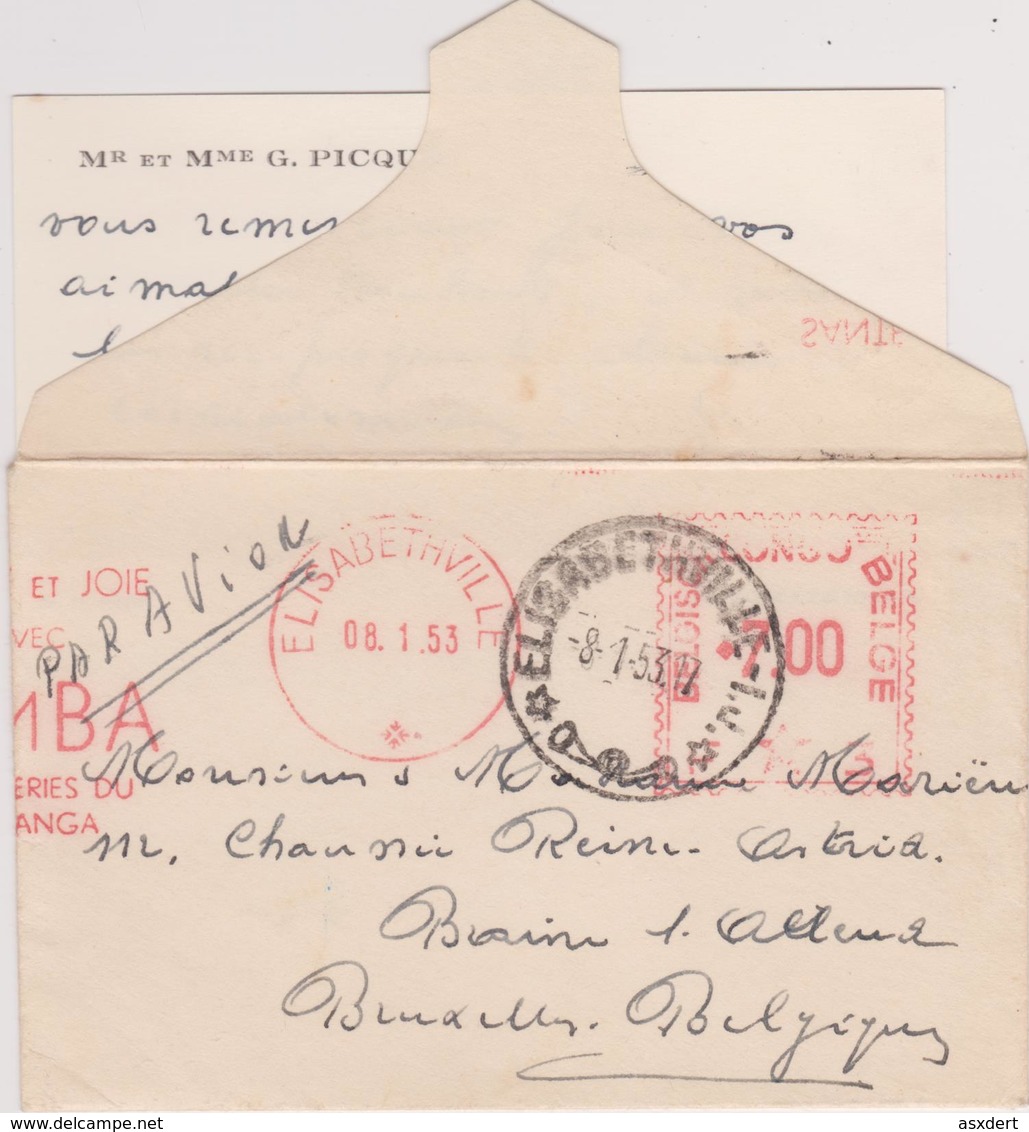 MR ET MME G. PICQU
vous remer vos
aimab
SANTE
PAR AVION
ET JOIE
VEC
MBA
ERIES DU
ANGA
ELISABETHVILLE
08. 1.53
ELISABETHVILLE-1
-8-1-53.17
CONGO BELGE
BELGISCH
7.00
Monsieur & Madame Mariën
111, Chaussée Reine Astrid.
Braine l. Alleud
Bruxelles. Belgique
www.delcampe.net
asxdert